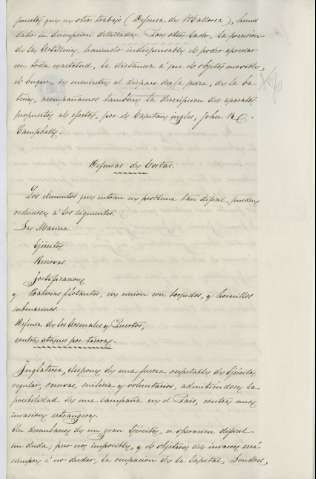 puesto que en otro trabajo (Defensa de Mallorca), hemos
dado la descripcion detallada. Por otro lado, la precision
de las Artilleria, haciendo indispensable el poder apreciar
en toda exactitud, la distancia á que se objetos movible,
el buque, se encuentra al disparo de la pieza, de la ba-
teria, acompañamos tambien la descripcion del aparato
propuesto al efecto, por el Capitan ingles, John R.
Campbell.
Defensas de Costas.
Los elementos que entran en problema tan dificil, pueden
reducirse á los siguientes.
La Marina
Ejército
Reservas
fortificaciones
y Baterias flotantes, en union con torpedos, y hornillos
submarinos.
Defensa de los Arsenales y Puertos,
contra ataques por tierra.
Inglaterra, dispone de una fuerza respetable de Ejército
regular, reservas, milicia y voluntarios, admitiendose la
posibilidad de una campaña en el Pais, contra una
invasion estrangera.
Un desembarco de un gran Ejército, es operacion dificil
sin duda, pero no imposible, y el objetivo del invasor será
siempre á no dudar, la ocupacion de la Capital, Londres,